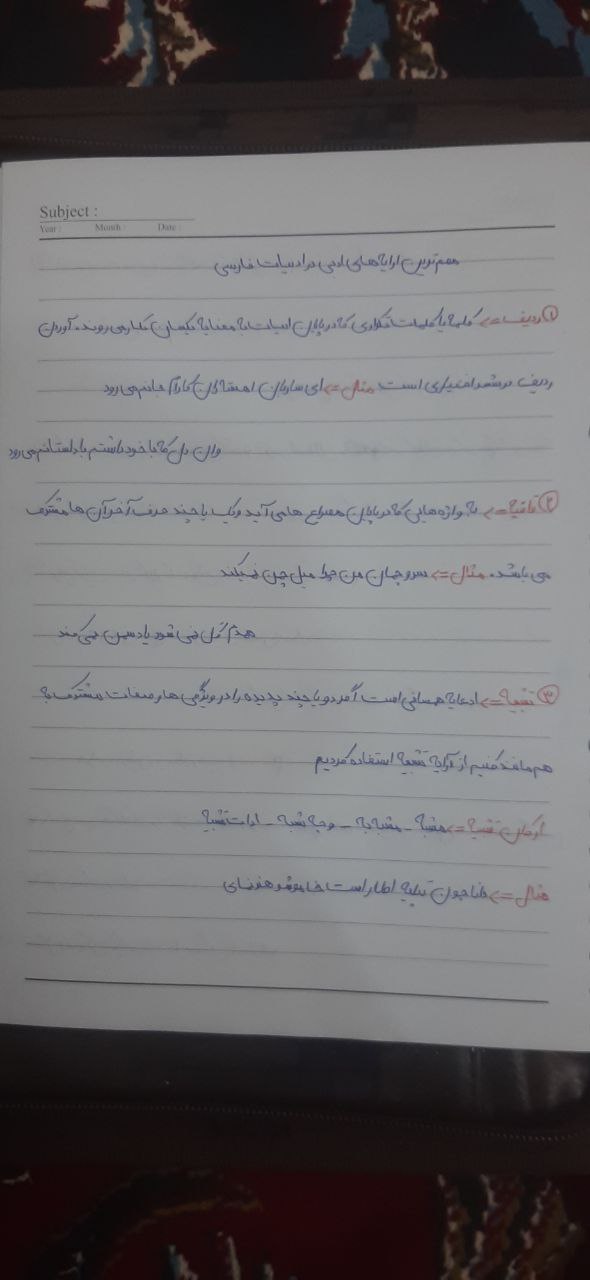 Subject :
Year : Month : Date :
مهم ترین ارایه های ادبی در ادبیات فارسی
① ردیف => کلمه یا کلمات تکراری که در پایان ابیات به معنایه یکسان تکرار می روند. آوردن
ردیف در شعر اختیاری است مثال => ای ساربان اهسته ران کارام جانم می رود
وان دل که با خود داشتم با دلستانم می رود
② قافیه => به واژه هایی که در پایان مصراع ها می آید و یک یا چند حرف آخر آن ها مشترک
می باشد. مثال => سرو چمان من چرا میل چمن نمیکند
همدم گل نمی شود یاد سمن نمی کند
③ تشبیه => ادعایه همسانی است اگر دو یا چند پدیده را در ویژگی ها و صفات مشترک به
هم مانند کنیم از آرایه تشبیه استفاده کردیم
ارکان تشبیه => مشبه - مشبه به - وجه شبه - ادات تشبیه
مثال => دانا چون طبله عطار است خاموش و هنرنمای